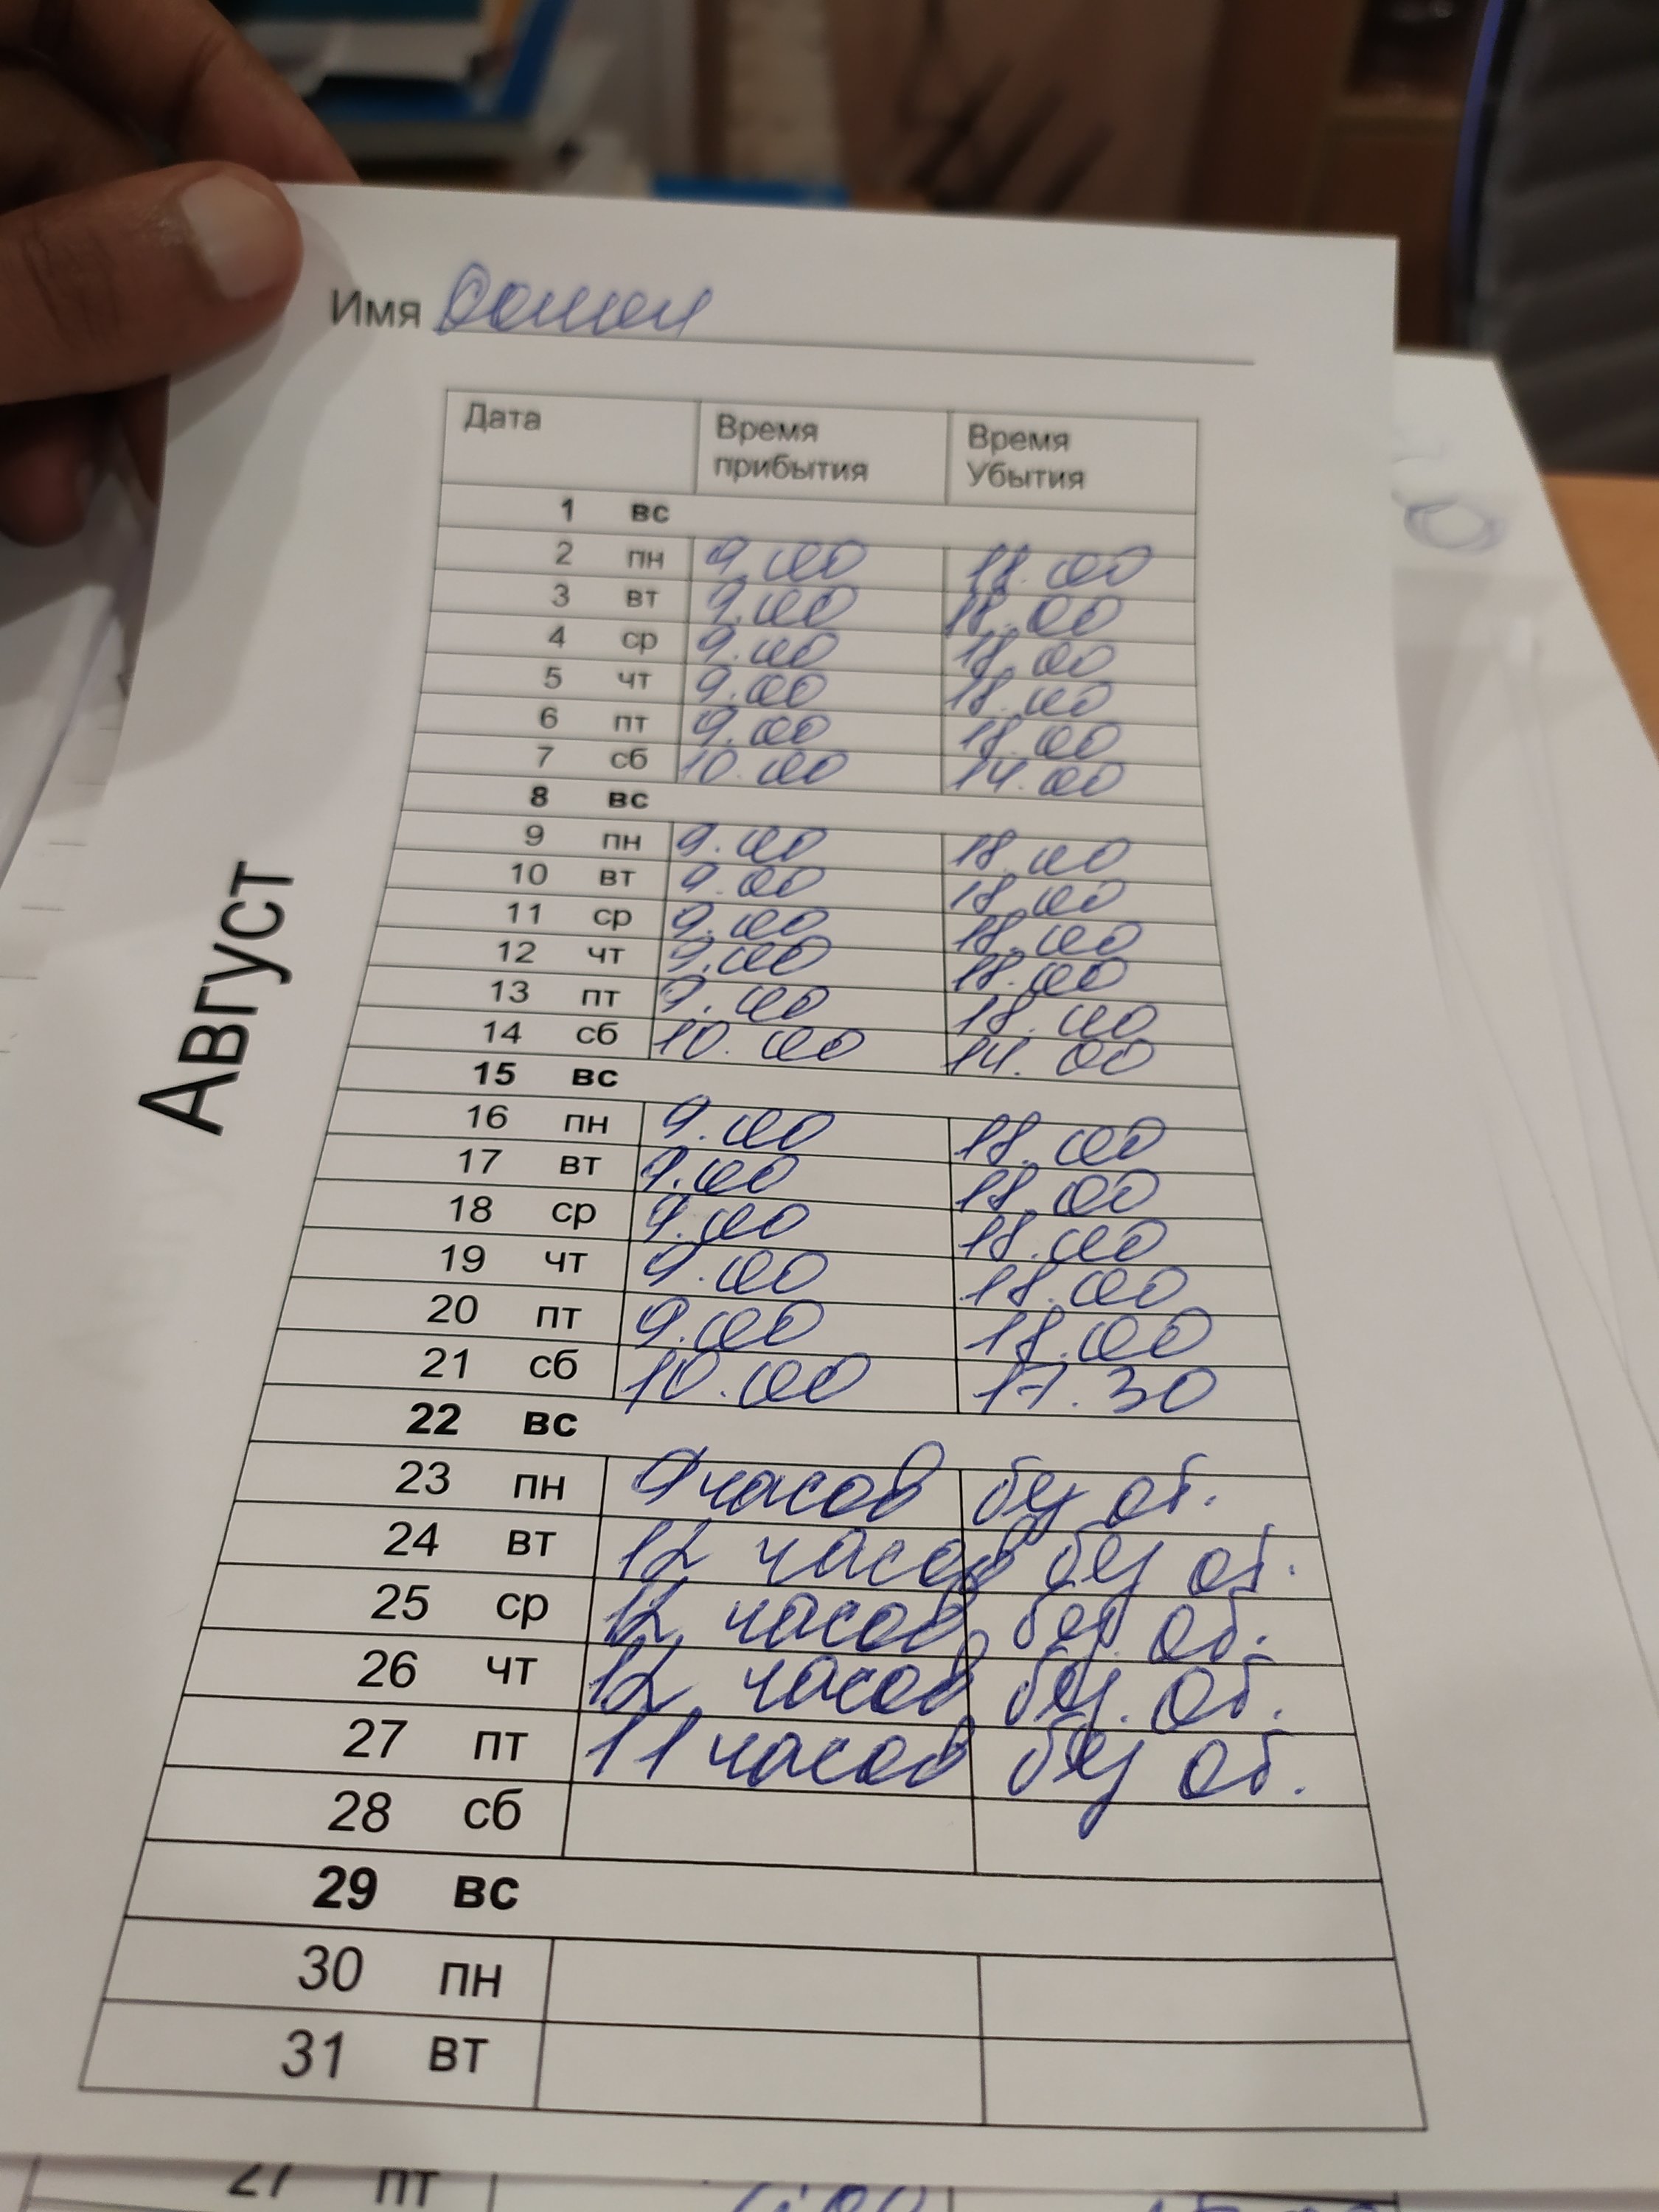 Имя
Дата Время прибытия Время Убытия
1 вс
2 пн 9.00 18.00
3 вт 9.00 18.00
4 ср 9.00 18.00
5 чт 9.00 18.00
6 пт 9.00 18.00
7 сб 10.00 14.00
8 вс
9 пн 9.00 18.00
10 вт 9.00 18.00
11 ср 9.00 18.00
12 чт 9.00 18.00
13 пт 9.00 18.00
14 сб 10.00 14.00
15 вс
16 пн 9.00 18.00
17 вт 9.00 18.00
18 ср 9.00 18.00
19 чт 9.00 18.00
20 пт 9.00 18.00
21 сб 10.00 17.30
22 вс
23 пн 9 часов без об.
24 вт 12 часов без об.
25 ср 12 часов без об.
26 чт 12 часов без. об.
27 пт 11 часов без об.
28 сб
29 вс
30 пн
31 вт
Август
27 пт